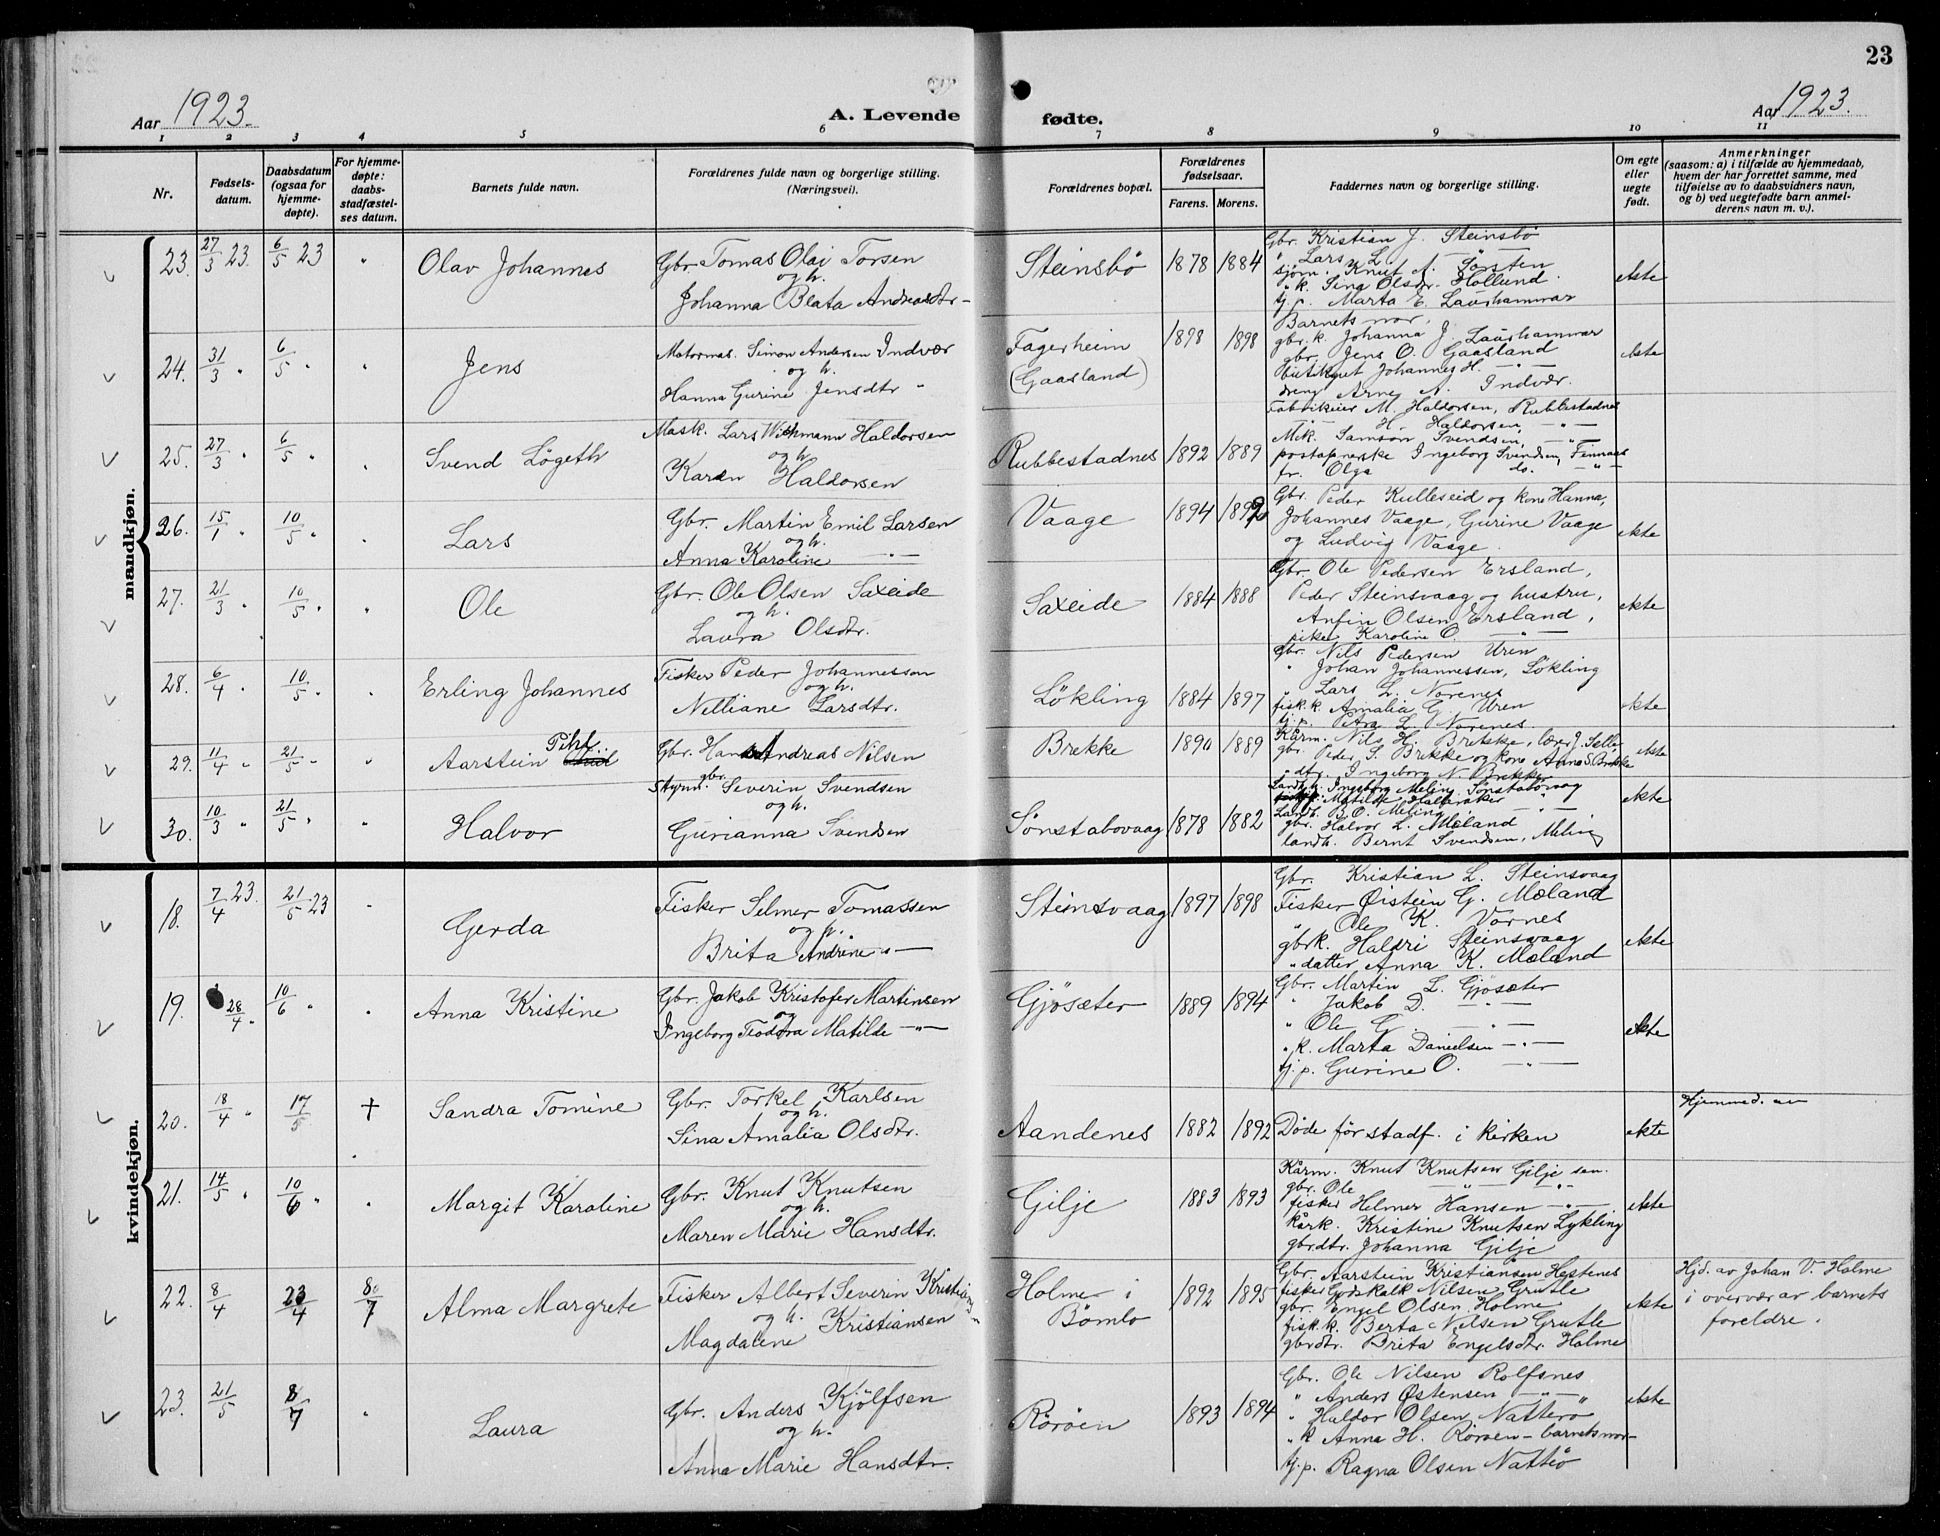 23
Aar 1923.
A. Levende fødte.
Aar 1923.
1 2 3 4 5 6 7 8 9 10 11
Nr.
Fødsels-datum.
Daabsdatum (ogsaa for hjemme-døpte).
For hjemme-døpte: daabs-stadfæstel-ses datum.
Barnets fulde navn.
Forældrenes fulde navn og borgerlige stilling. (Næringsvei).
Forældrenes bopæl.
Forældrenes fødselsaar.
Farens. Morens.
Faddernes navn og borgerlige stilling.
Om egte eller uegte født.
Anmerkninger
(saasom: a) i tilfælde av hjemmedaab,
hvem der har forrettet samme, med
tilføielse av to daabsvidners navn,
og b) ved uegtefødte barn anmel-
derens navn m. v.).
mandkjøn.
23. 27/3 23. 6/5 23 " Olav Johannes
Gbr. Tomas Olai Torsen
og h.
Johanna Beata Andreasdtr. -
Steinsbø 1878 1884
Gbr. Kristian J. Steinsbø
" Lars L. -"-
sjøm. Knut A. Torsten
" k. Sina Olsdtr. Hollund
tj. p. Marta E. Laurhammar
ekte
24. 31/3 " 6/5 " " Jens
Motormas. Simon Andersen Indvær
og h.
Hanna Gurine Jensdtr "
Fagerheim
(Gaasland)
1898 1898
Barnets mor,
gbr. k. Johanna J. Laurhammar
gbr. Jens O. Gaasland
Johannes H. -"-
dreng Arne A. Indvær.
ekte
25. 27/3 " 6/5 " " Svend Løgeth
Mask. Lars Wichmann Haldorsen
og h.
Karen Haldorsen
Rubbestadnes 1892 1889
Fabrikeier M. Haldorsen, Rubbestadnes
-"- H. Haldorsen, -"-
Mek. Samson Svendsen, -"-
postaapnerske Ingeborg Svendsen, Finnaas
fr. Olga do. -"-
26. 15/1 " 10/5 " " Lars
Gbr. Martin Emil Larsen
og h.
Anna Karoline -"-
Vaage 1894 1892
Gbr. Peder Kulleseid og kone Hanna,
Johannes Vaage, Gurine Vaage
og Ludvig Vaage.
ekte
27. 21/3 " 10/5 " " Ole
Gbr. Ole Olsen Saxeide
og h.
Laura Olsdtr.
Saxeide 1884 1888
Gbr. Ole Pedersen Ersland,
Peder Steinsvaag og hustru,
Anfin Olsen Ersland,
pike Karoline O. -"-
ekte
28. 6/4 " 10/5 " " Erling Johannes
Fisker Peder Johannesson
og h.
Nelliane Larsdtr.
Løkling 1884 1897
gbr. Nils Pedersen Uren
" Johan Johannessen, Løkling
" Lars L. Norenes
fisk. k. Amalia G. Uren
tj. p. Petra L. Norenes
ekte
29. 11/4 " 21/5 " " Aarstein Pihl
Gbr. Hans Andreas Nilsen
Brekke 1890 1889
Kårm. Nils H. Brekke, lærer J. Selle
gbr. Peder S. Brekke og kone Anna S. Brekke
" dtr. Ingeborg N. Brekke
ekte
30. 10/3 " 21/5 " " Halvor
Styrm. gbr. Severin Svendsen
og h.
Gurianna Svendsen
Sønstabovaag 1878 1882
Landh. Ingeborg Meling Sønstabovaag
Matilde Halleraker -"-
Landh. B. O. Meling
gbr. Halvor L. Møland
landh. Bernt Svendsen, Meling
ekte
kvindekjøn.
18. 7/4 23. 21/5 23 " Gerda
Fisker Selmer Tomassen
og h.
Brita Andrine -"-
Steinsvaag 1897 1898
Gbr. Kristian L. Steinsvaag
Fisker Øistein G. Møland
" Ole K. Vornes
gbrk. Haldri Steinsvaag
" datter Anna K. Møland
ekte
19. 28/4 " 10/6 " " Anna Kristine
Gbr. Jakob Kristofer Martinsen
og
Ingeborg Teodora Matilde -"-
Gjøsæter 1889 1894
Gbr. Martin L. Gjøsæter
" Jakob D. -"-
" Ole G. -"-
" k. Marta Danielsen -"-
tj. p. Gurine O. -"-
ekte
20. 18/4 " 17/5 + Sandra Tomine
Gbr. Torkel Karlsen
og h.
Sina Amalia Olsdtr.
Aandenes 1882 1892
Døde før stadf. i kirken
ekte
Hjemmed. av
21. 14/5 " 10/6 " " Margit Karoline
Gbr. Knut Knutsen
og h.
Maren Marie Hansdtr.
Gilje 1883 1893
Kårm. Knut Knutsen Gilje sen.
gbr. Ole -"- -"-
fisker Helmer Hansen -"-
kårk. Kristine Knutsen Lykling
gbrdtr. Johanna Gilje
ekte
22. 8/4 23/4 8/7 Alma Margrete
Fisker Albert Severin Kristiansen
og h.
Magdalene Kristiansen
Holme i
Bømlo
1892 1895
Gbr. Aarstein Kristiansen Hestenes
fisker Godskalk Nilsen Grutle
gbr. Engel Olsen Holme
fisk. k. Berta Nilsen Grutle
gbrdtr. Brita Engelsdtr. Holme
ekte
Hjd. av Johan V. Holme
i overvær av barnets
foreldre.
23. 21/5 8/7 " Laura
Gbr. Anders Kjølfsen
og h.
Anna Marie Hansdtr.
Rørøen 1893 1894
Gbr. Ole Nilsen Rolfsnes
" Anders Østensen -"-
" Haldor Olsen Nattero
" k Anna H. Rørøen - barnets mor -
tj. p. Ragna Olsen Nattero
ekte